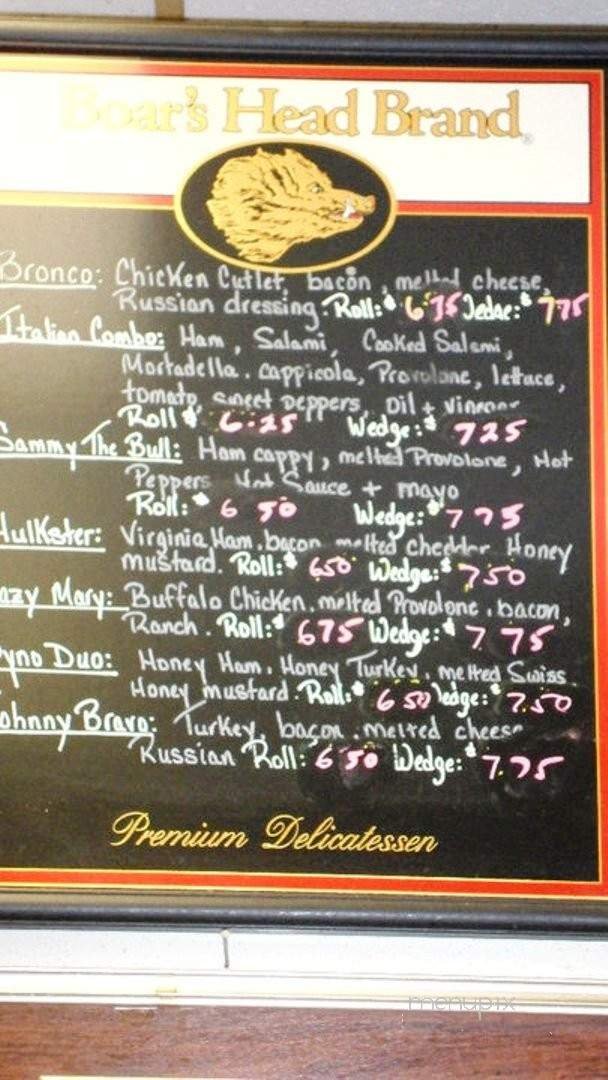 Boar's Head Brand
Bronco: Chicken Cutlet, bacon, melted cheese,
Russian dressing. Roll: $ 6 75 Wedge: $ 775
Italian Combo: Ham, Salami, Cooked Salami,
Mortadella, cappicola, Provolone, lettuce,
tomato, sweet peppers, Oil + Vinegar
Roll $ 6.25 Wedge: $ 725
Sammy The Bull: Ham cappy, melted Provolone, Hot
Peppers Hot Sauce + mayo
Roll: $ 6 50 Wedge: $ 7 75
Hulkster: Virginia Ham, bacon melted chedder Honey
mustard. Roll: $ 650 Wedge: $ 750
azy Mary: Buffalo Chicken, melted Provolone, bacon,
Ranch. Roll: $ 675 Wedge: $ 7 75
yno Duo: Honey Ham, Honey Turkey, melted Swiss
Honey mustard. Roll: $ 6 50 Wedge: $ 7.50
ohnny Bravo: Turkey, bacon, melted cheese
Russian Roll: 6 50 Wedge: $ 7.75
Premium Delicatessen
menupix